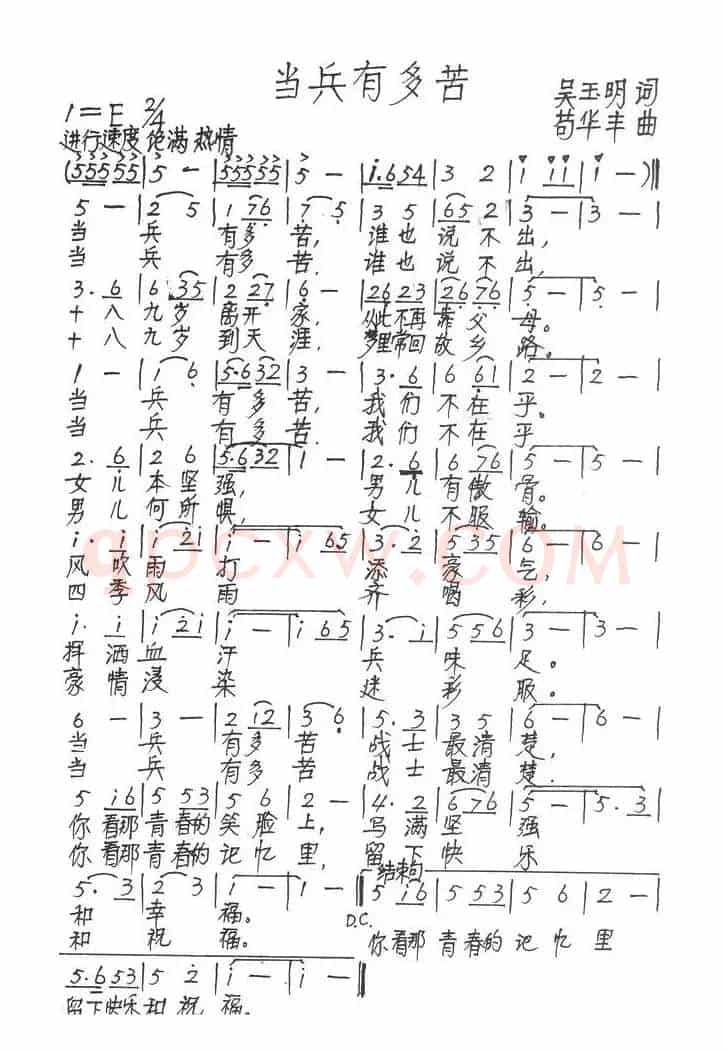 当兵有多苦
吴玉明 词
1=E 2/4
苟华丰 曲
进行速度 饱满 热情
(5555 55 | 5 — | 5555 55 | 5 — | i.654 | 3 2 | i ii | i — )‖
5 — | 2 5 | 1 76 | 7 5 | 3 5 | 65 2 | 3 — | 3 — |
当 兵 有多 苦, 谁也 说 不 出,
当 兵 有多 苦. 谁也 说 不 出,
3. 6 | 6 35 | 2 27 | 6 — | 26 23 | 26 76 | 5 — | 5 — |
十 八 九岁 离开 家, 从此不再 靠 父 母。
十 八 九岁 到天 涯, 梦里常回 故 乡 路。
1 — | 1 6 | 5.632 | 3 — | 3. 6 | 6 61 | 2 — | 2 — |
当 兵 有多 苦, 我们 不在 乎。
当 兵 有多 苦. 我们 不在 乎
2. 6 | 2 6 | 5.632 | 1 — | 2. 6 | 6 76 | 5 — | 5 — |
女 儿 本 坚 强, 男 儿 有 傲 骨。
男 儿 何 所 惧, 女 儿 不 服 输。
i. i | i 2i | i — | i 65 | 3. 2 | 5 35 | 6 — | 6 — |
风 吹 雨 打 添 豪 气,
四 季 风 雨 齐 喝 彩,
QDCXW.COM
i. i | i 2i | i — | i 65 | 3. i | 5 56 | 3 — | 3 — |
挥 洒 血 汗 兵 味 足。
豪 情 浸 染 迷 彩 服。
6 — | 3 — | 2 12 | 3 6 | 5. 3 | 3 5 | 6 — | 6 — |
当 兵 有多 苦 战 士 最 清 楚,
当 兵 有多 苦 战 士 最 清 楚.
5 i6 | 5 53 | 5 6 | 2 — | 4. 2 | 6 76 | 5 — | 5. 3 |
你看那 青春的 笑 脸 上, 写 满 坚 强
你看那 青春的 记 忆 里, 留 下 快 乐
结束句
5. 3 | 2 3 | 1 — | 1 — ‖ 5 i6 | 5 53 | 5 6 | 2 — |
D.C.
和 幸 福。
和 祝 福。 你看那 青春的 记 忆 里
5.653 | 5 2 | i — | i — ‖
留下快乐和 祝 福。